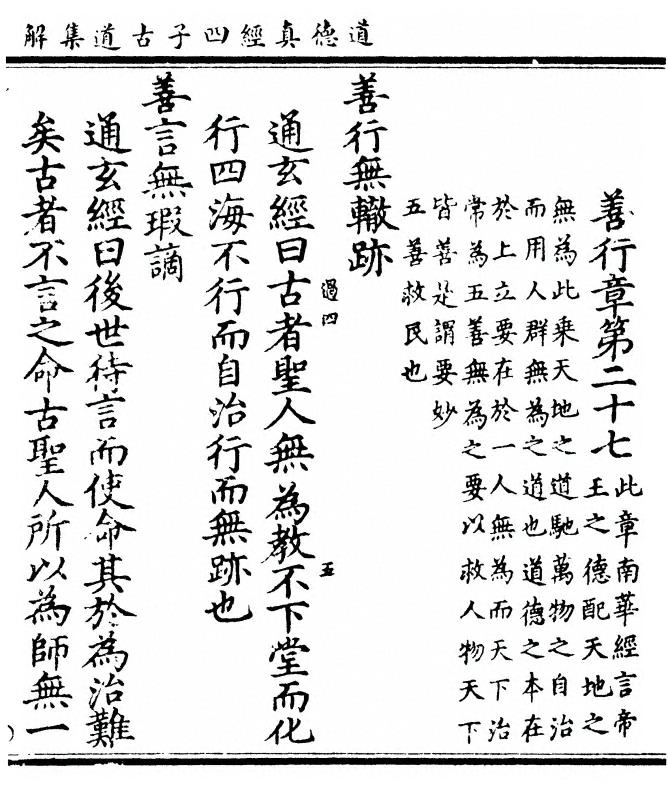 道德真經四子古道集解
善行章第二十七
此章南華經言帝
王之德配天地之
無為此乘天地之道馳萬物之自治
而用人群無為之道也道德之本在
於上立要在於一人無為而天下治
常為五善無為之要以救人物天下
皆善是謂要妙
五善救民也
善行無轍跡
過四
五
通玄經曰古者聖人無為教不下堂而化
行四海不行而自治行而無跡也
善言無瑕謫
通玄經曰後世待言而使命其於為治難
矣古者不言之命古聖人所以為師無一